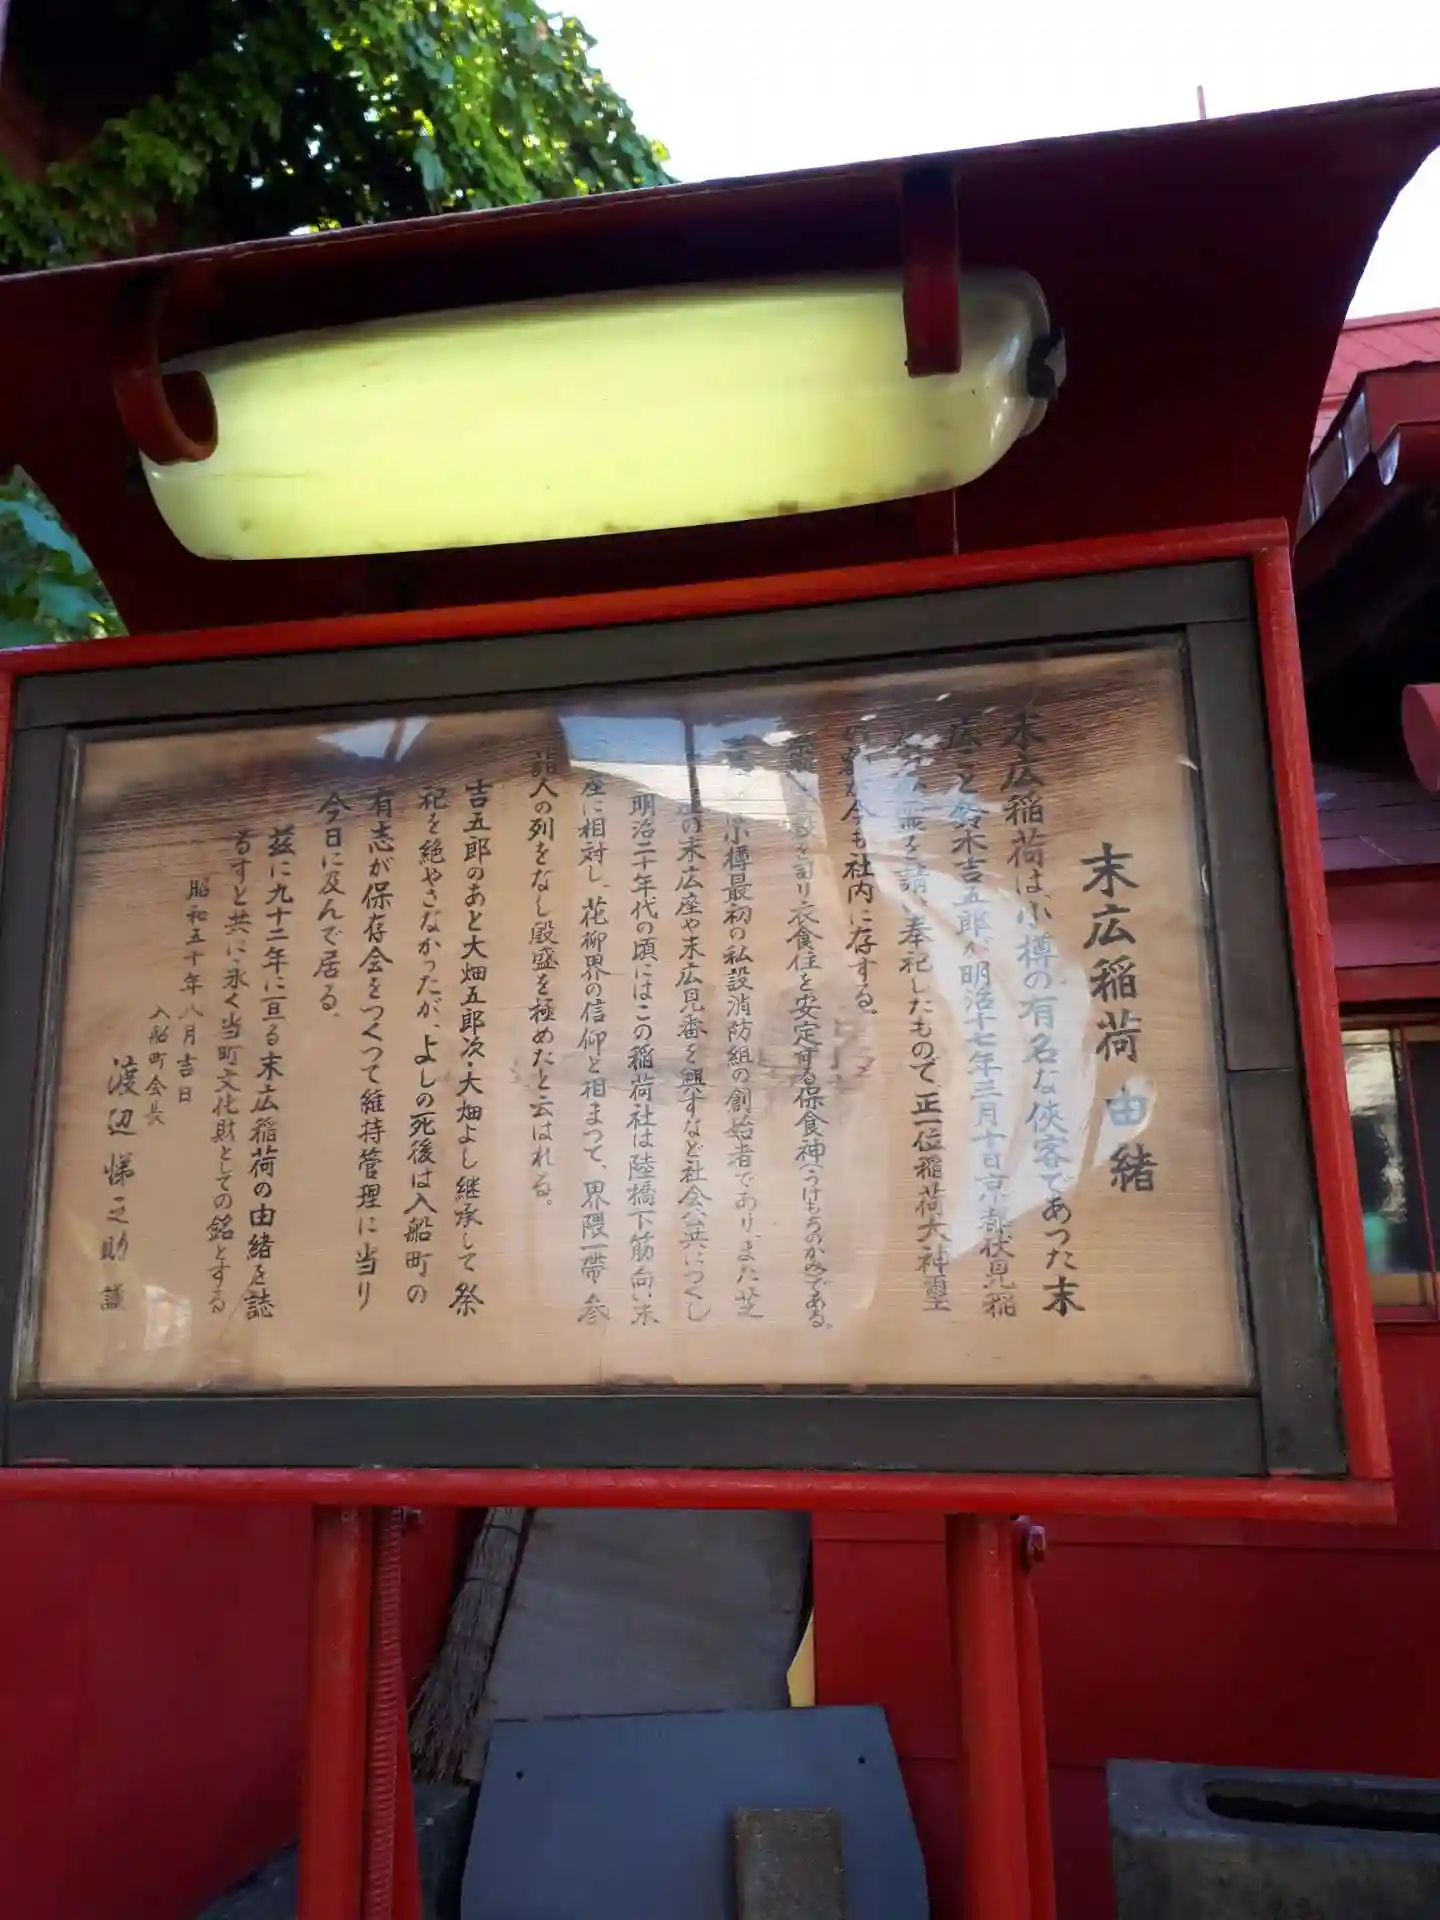 末広稲荷 由緒
末広稲荷は、小樽の有名な侠客であった末
広こと鈴木吉五郎が明治十七年三月十日京都伏見稲
を請い奉祀したもので、正一位稲荷大神璽
今も社内に存する。
を司り衣食住を安定する保食神(うけもちのかみ)である。
小樽最初の私設消防組の創始者であり、また芝
の末広座や末広見番を興すなど社会公共につくし
明治二十年代の頃にはこの稲荷社は陸橋下筋向い末
座に相対し、花柳界の信仰と相まつて、界隈一帯参
詣人の列をなし殷盛を極めたと云はれる。
吉五郎のあと大畑五郎次・大畑よし継承して祭
祀を絶やさなかったが、よしの死後は入船町の
有志が保存会をつくつて維持管理に当り
今日に及んで居る。
茲に九十二年に亘る末広稲荷の由緒を誌
るすと共に永く当町文化財としての銘とする
昭和五十年八月吉日
入船町会長
渡辺悌之助 誌